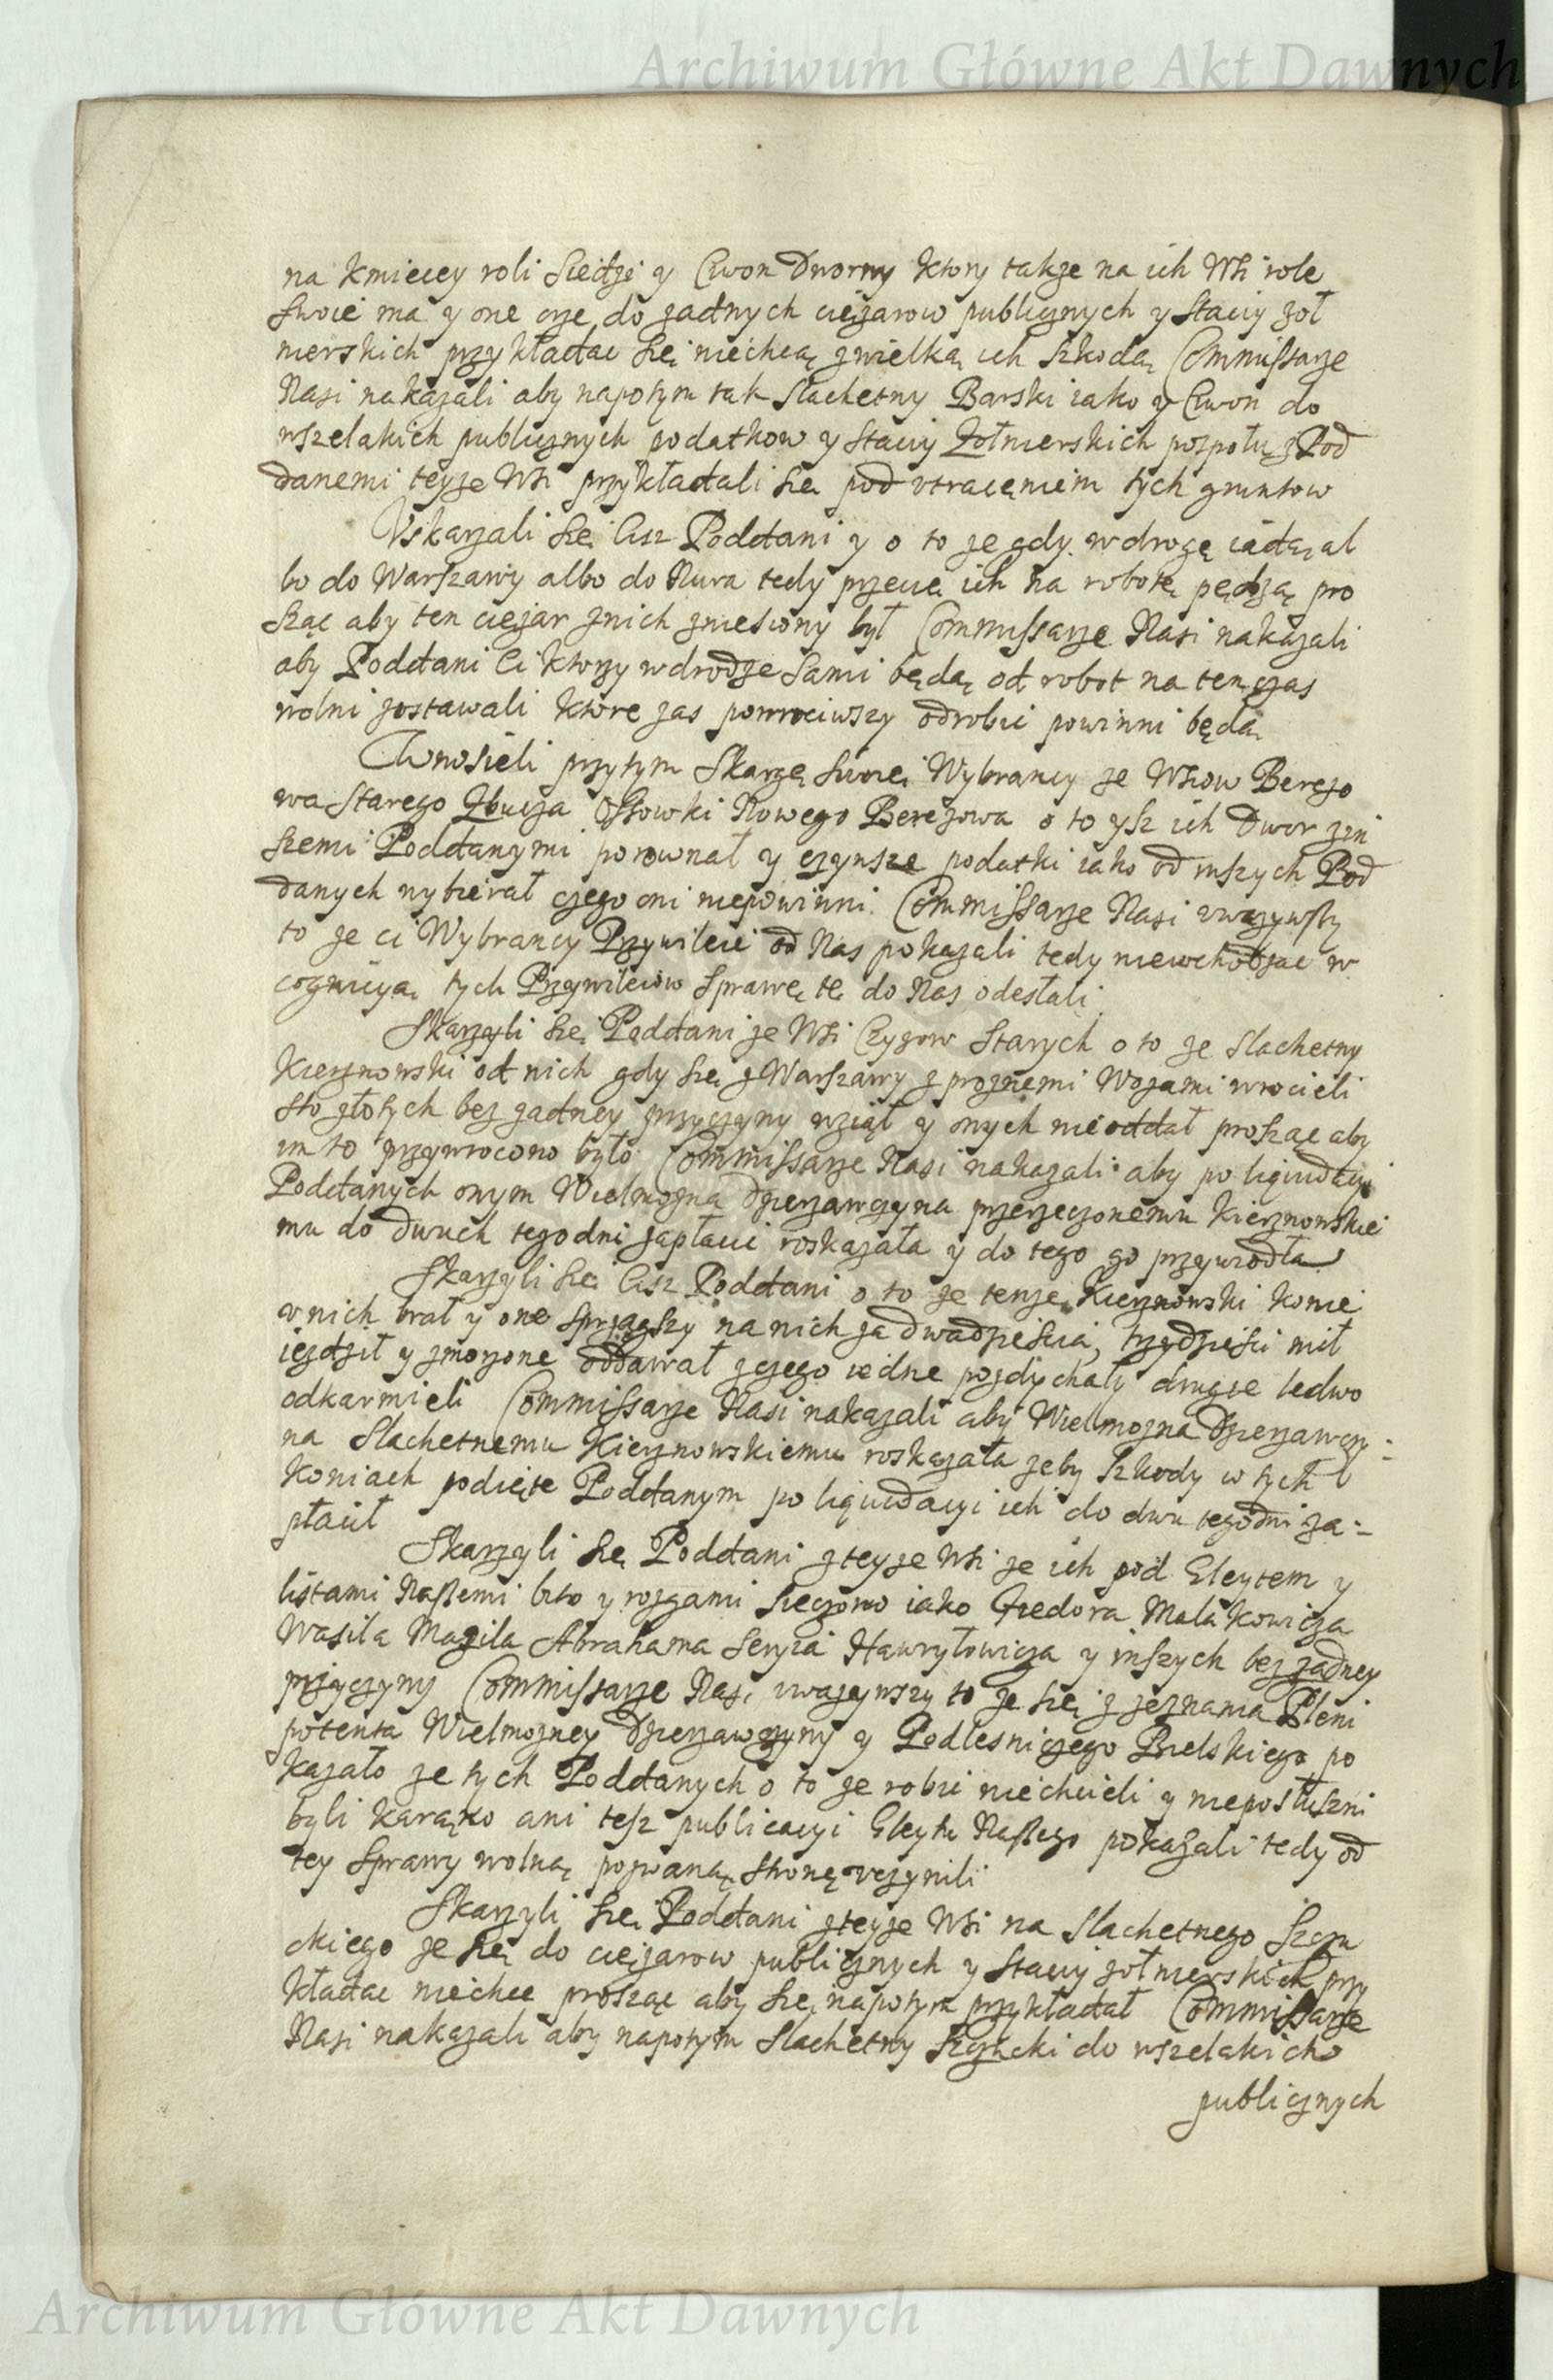 Archiwum Główne Akt Dawnych
na kmiecey roli siedzi y Ciwon Dworny ktory takze na ich Wsi role
swoie ma y one orze do zadnych ciężarow publicznych y staciy zoł
nierskich przykładac się niechcą z wielką ich szkodą Commissarze
Nasi nakazali aby napotym tak slachetny Barski iako y Ciwon do
wszelakich publicznych podatkow y stacij Zołnierskich pospołu z Pod
danemi teyze Wsi przykładali się pod utracęniem tych gruntow
Uskarzali się cisz Poddani y o to ze gdy w drogę iadą al
bo do Warszawy albo do Nura tedy przecie ich na robotę pędzą pro
sząc aby ten ciezar z nich zniesiony był Commissarze Nasi nakazali
aby Poddani ci ktorzy w drodze sami będą od robot na ten czas
wolni zostawali ktore zas powrociwszy odrobic powinni będą
Wnosieli przytym skargę swoię Wybrancy ze Wsiow Berezo
wa Starego Zbucza Ossowki Nowego Berezowa o to ysz ich Dwor z in
szemi Poddanymi porownał y czynsze podatki iako od inszych Pod
danych wybierał czego oni niepowinni. Commissarze Nasi uwazywszy
to ze ci Wybrancy Przywileie od Nas pokazali tedy niewchodząc w
cognicyą tych Przywileiow sprawę tę do Nas odesłali
Skarzyli się Poddani ze Wsi Czyzow Starych o to ze slachetny
Kierznowski od nich gdy się z Warszawy z proznemi Wozami wrocieli
sto złotych bez zadney przyczyny wziął y onych nie oddał prosząc aby
im to przywrocono było Commissarze Nasi nakazali aby po liquidacyi
Poddanych onym Wielmozna Dzierzawczyna przerzeczonemu Kierznowskie
mu do dwuch tegodni zapłacic roskazała y do tego go przywiodła
Skarzyli się cisz Poddani o to ze tenze Kierznowski konie
u nich brał y one sprzągszy na nich za dwadziescia, trzydziesci mil
iezdził y zmorzone oddawał z czego iedne pozdychały drugie ledwo
odkarmieli Commissarze Nasi nakazali aby Wielmozna Dzierzawczy-
na Slachetnemu Kierznowskiemu roskazała zeby szkody w tych
koniach podięte Poddanym po liquidacyi ich do dwu tegodni za-
płacił
Skarzyli się Poddani z teyze Wsi ze ich pod Gleytem y
listami Naszemi bito y rozgami sieczono iako Fiedora Malakowicza
Wasila Mazila Abrahama Hawryłowicza y inszych bez zadney
przyczyny Commissarze Nasi uwazywszy to ze się z zeznania Pleni
potenta Wielmozney Dzierzawczyny y Podlesniczego Bielskiego po
kazało ze tych Poddanych o to ze robic niechcieli y nieposłuszni
byli karąno ani tesz publicacyi Gleytu Naszego pokazali tedy od
tey sprawy wolną pozwaną stronę uczynili
Skarzyli się Poddani z teyze Wsi na Slachetnego Szczu
ckiego ze się do ciężarow publicznych y stacij zołnierskich przy
kładac niechce prosząc aby się napotym przykładał Commissarze
Nasi nakazali aby napotym Slachetny Szczucki do wszelakich
publicznych
Archiwum Główne Akt Dawnych